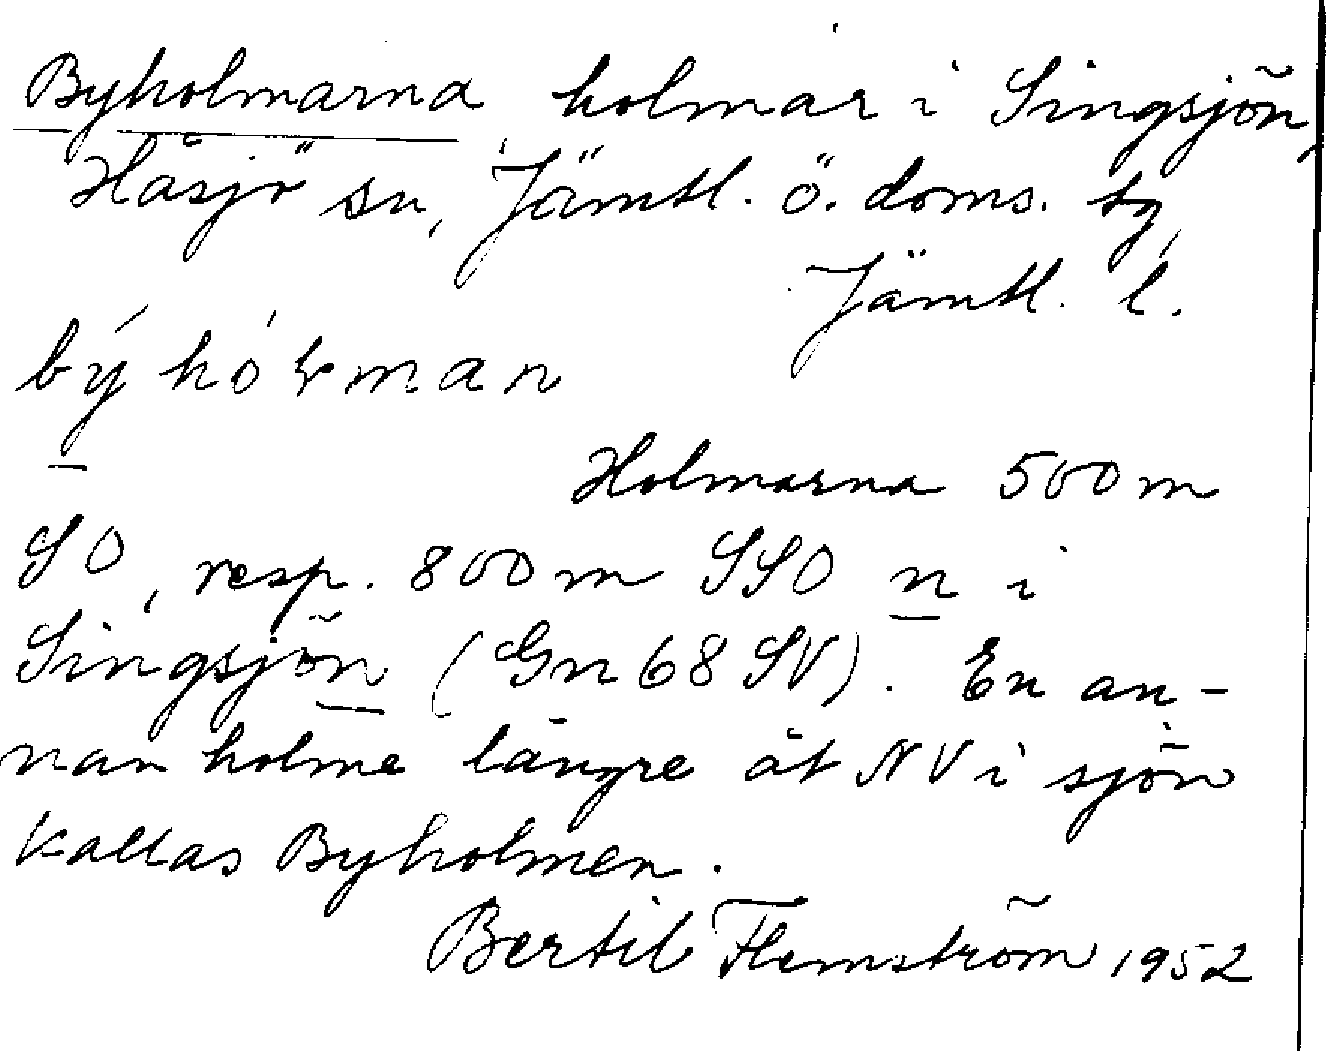 Byholmarna, holmar i Singsjön,
Håsjö sn, Jämtl. ö. doms. tg,
Jämtl. l.
býhóḷman
Holmarna 500 m
SO, resp. 800 m SSO n i
Singsjön (Gn 68 SV). En an-
nan holme längre åt NV i sjön
kallas Byholmen.
Bertil Flemström 1952